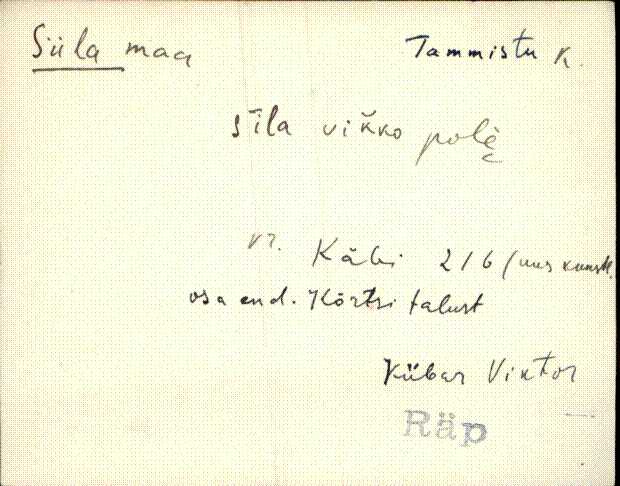 Siila maa Tammistu K.
sīla vikko polɛ̀
vr. Käbi 216 (uus kunstl.
osa end. Kõrtsi talust
Kübar Viktor
Räp